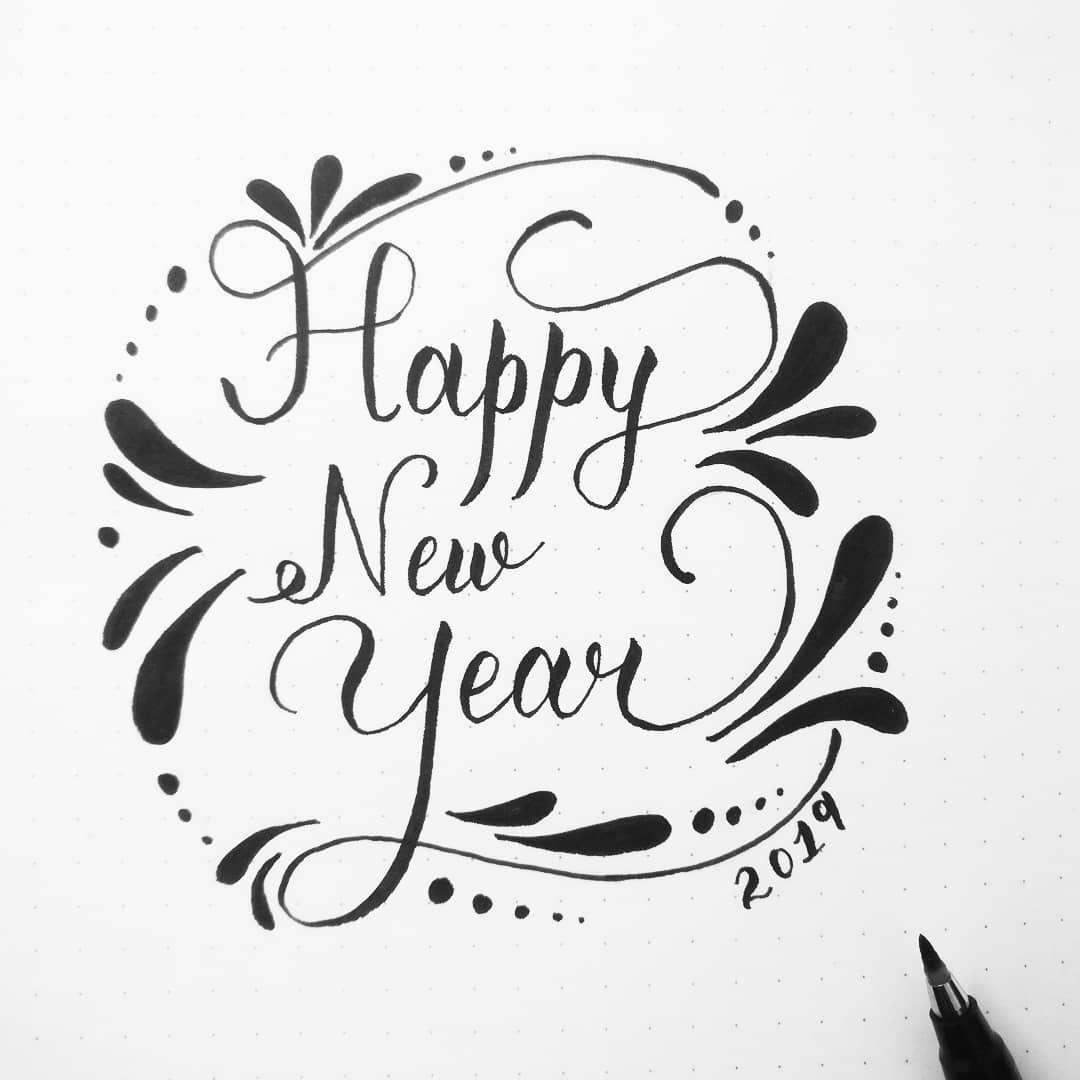 Happy
New
Year
2019